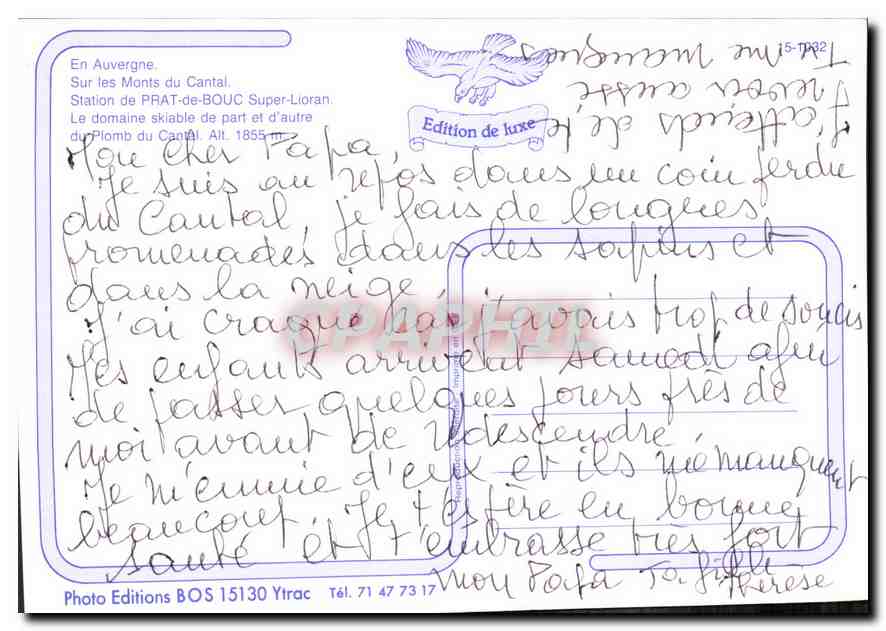 En Auvergne.
Sur les Monts du Cantal.
Station de PRAT-de-BOUC Super-Lioran.
Le domaine skiable de part et d'autre
du Plomb du Cantal. Alt. 1855 m.
Edition de luxe
15-1032
Mon cher Papa,
Je suis au repos dans un coin perdu
du Cantal, je fais de longues
promenades dans les sapins et
dans la neige,
J'ai craqué car j'avais trop de soucis
Mes enfants arrivent samedi afin
de passer quelques jours près de
moi avant de redescendre,
Je m'ennuie d'eux et ils me manquent
beaucoup, je t'espère en bonne
santé et t'embrasse très fort
mon Papa Ta fille
Thérèse
J'attends de te
revoir aussi
Tu me manques
CPAPHIL
Imprimé en
Photo Editions BOS 15130 Ytrac Tél. 71 47 73 17